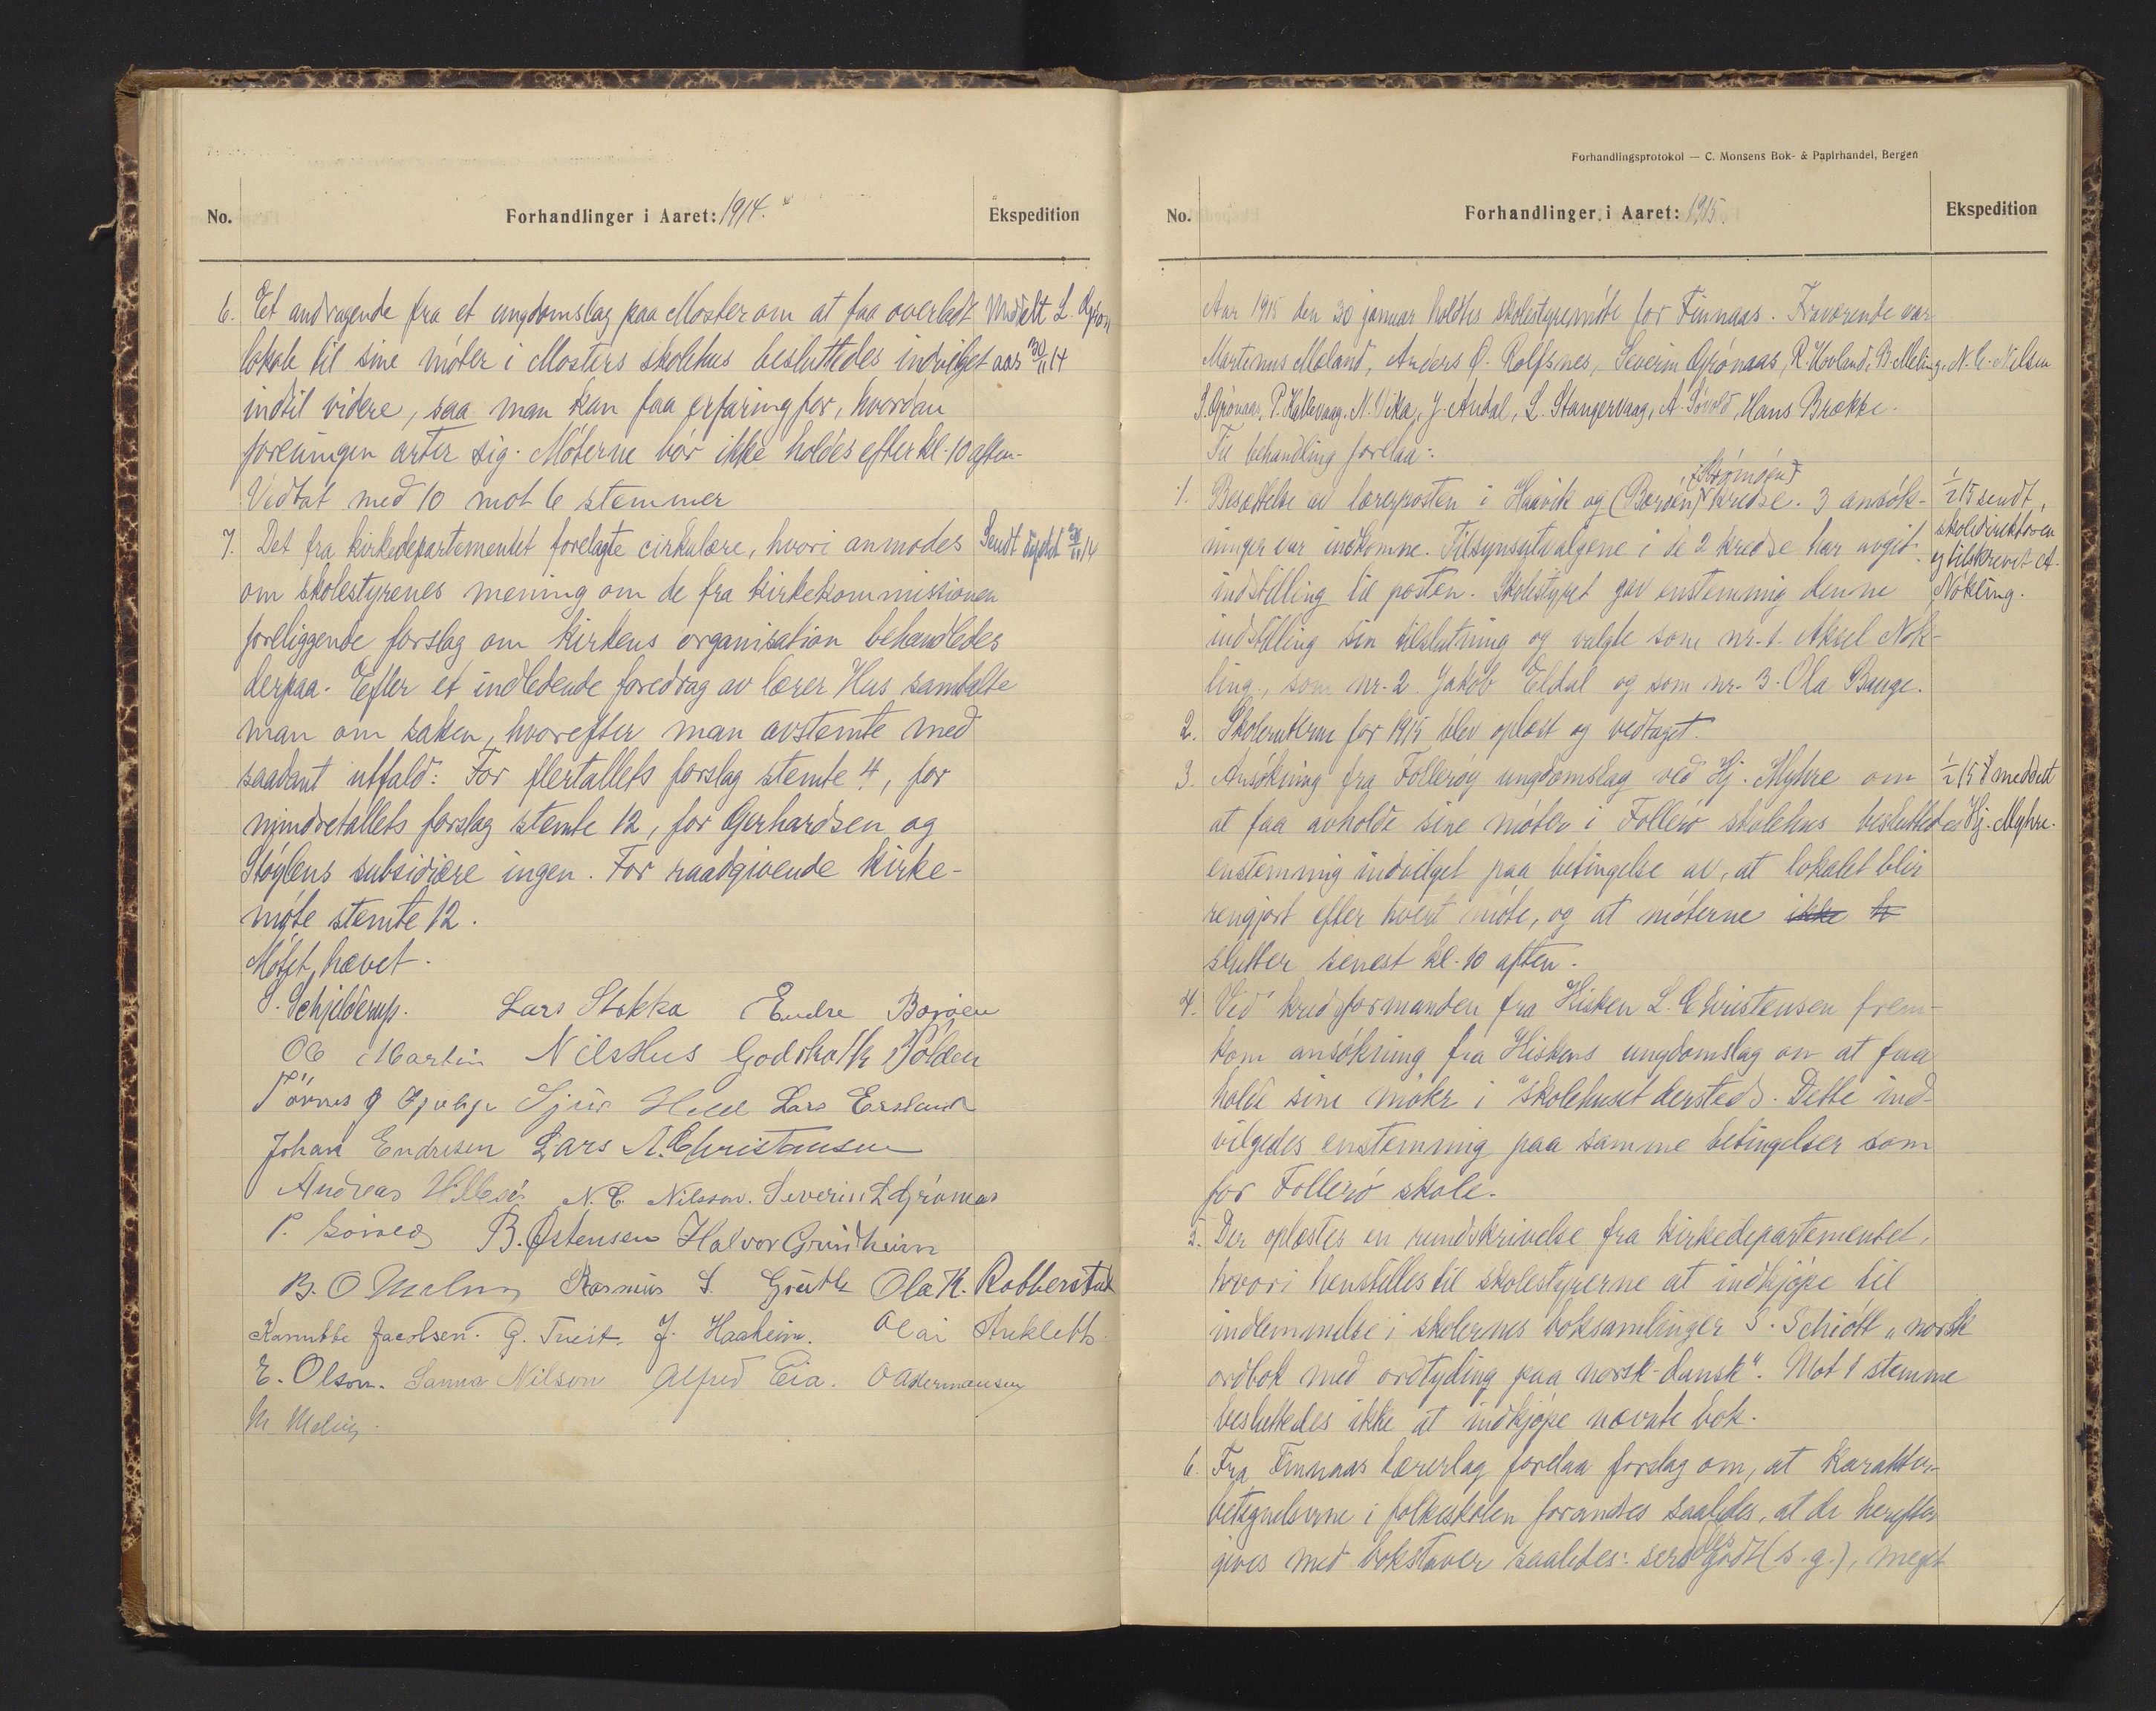 No.
Forhandlinger i Aaret: 1914.
Ekspedition
6. Et andragende fra et ungdomslag paa Moster om at faa overladt
lokale til sine møter i Mosters skolehus besluttedes indvilget
indtil videre, saa man kan faa erfaring for, hvordan
foreningen arter sig. Møterne bør ikke holdes efter kl. 10 aften.
Vedtat med 10 mot 6 stemmer
Meddelt L. Grøn
aas 30/11 14
7. Det fra kirkedepartementet forelagte cirkulære, hvori anmodes
om skolestyrenes mening om de fra kirkekommissionen
foreliggende forslag om kirkens organisation behandledes
derpaa. Efter et indledende foredrag av lærer Hus samtalte
man om saken, hvorefter man avstemte med
saadant utfald: For flertallets forslag stemte 4, for
mindretallets forslag stemte 12, for Gerhardsen og
Støylens subsidiære ingen. For raadgivende kirke-
møte stemte 12.
Møtet hævet.
Sendt 30/11 14
S. Schjelderup. Lars Stokka Endre Børøen
Ole Martin Nils Hus Godskalk Polden
Johan Endresen Lars A. Christensen
Andreas N. C. Nilsson. Severin L Grønaas
B. Østensen Halvor Grindheim
B. O Meling Rasmus S. Ola K. Robberstad
Jacobsen. G. Tveit. J. Haaheim. Olai
E. Olson. Sanna Nilson Alfred Eia. O Aadermansen
M Meling.
Forhandlingsprotokol — C. Monsens Bok- & Papirhandel, Bergen
No.
Forhandlinger i Aaret: 1915.
Ekspedition
Aar 1915 den 30 januar holdtes skolestyremøte for Finnaas. Fraværende var
Martinus Mæland, Anders O. Rolfsnes, Severin Grønaas, R. Hovland, B. Meling, N. C. Nilsen
S. Grønaas, P. Kallevaag, N. Vika, J. Andal, L. Stangervaag, A. Søvold, Hans Brække.
Til behandling forelaa:
1. Besættelse av lærerposten i Haavik og (Børøen) kredse. 3 ansøk-
ninger var indkomne. Tilsynsutvalgene i de 2 kredse har avgit
indstilling til posten. Skolestyret gav enstemmig denne
indstilling sin tilslutning og valgte som nr. 1. Aksel Nøk-
ling, som nr. 2 Jakob Eldal og som nr. 3. Ola Bauge.
1/2 15 sendt
skoledirektøren
og tilskrevet A.
Nøkling.
2. Skoleruterne for 1915 blev oplæst og vedtaget.
3. Ansøkning fra Føllerøy ungdomslag ved Hj. Myhre om
at faa avholde sine møter i Føllerø skolehus besluttedes
enstemmig indvilget paa betingelse av, at lokalet blir
rengjort efter hvert møte, og at møterne ikke h
slutter senest kl. 10 aften.
1/2 15 meddelt
Hj. Myhre.
4. Ved kredsformanden fra Hisken L. Christensen frem-
kom ansøkning fra Hiskens ungdomslag om at faa
holde sine møter i skolehuset dersteds. Dette ind-
vilgedes enstemmig paa samme betingelser som
for Føllerø skole.
5. Der oplæstes en rundskrivelse fra kirkedepartementet,
hvori henstilles til skolestyrerne at indkjøpe til
indlemmelse i skolernes boksamlinger S. Schiøtt „norsk
ordbok med ordtyding paa norsk-dansk". Mot 1 stemme
besluttedes ikke at indkjøpe nævnte bok.
6. Fra Finnaas lærerlag forelaa forslag om, at karakter-
betegnelserne i folkeskolen forandres saaledes, at de herefter
gives med bokstaver saaledes: serdeles godt (s. g.), meget